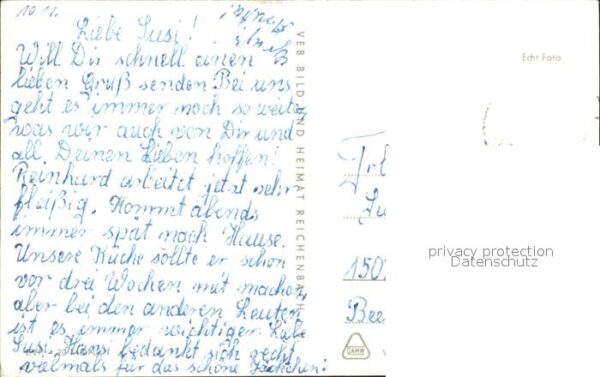 10 11.
Liebe Susi!
Will Dir schnell einen
lieben Gruß senden Bei uns
geht es immer noch so weiter,
was wir auch von Dir und
all Deinen Lieben hoffen!
Reinhard arbeitet jetzt sehr
fleißig. Kommt abends
immer spät nach Hause.
Unsere Küche sollte er schon
vor drei Wochen mit machen,
aber bei den anderen Leuten
ist es immer wichtiger Liebe
Susi, Hansi bedankt sich recht
vielmals für das schöne Jäckchen!
VEB BILD UND HEIMAT REICHENBACH
Echt Foto
Frl
Su
150
Bee
privacy protection
Datenschutz